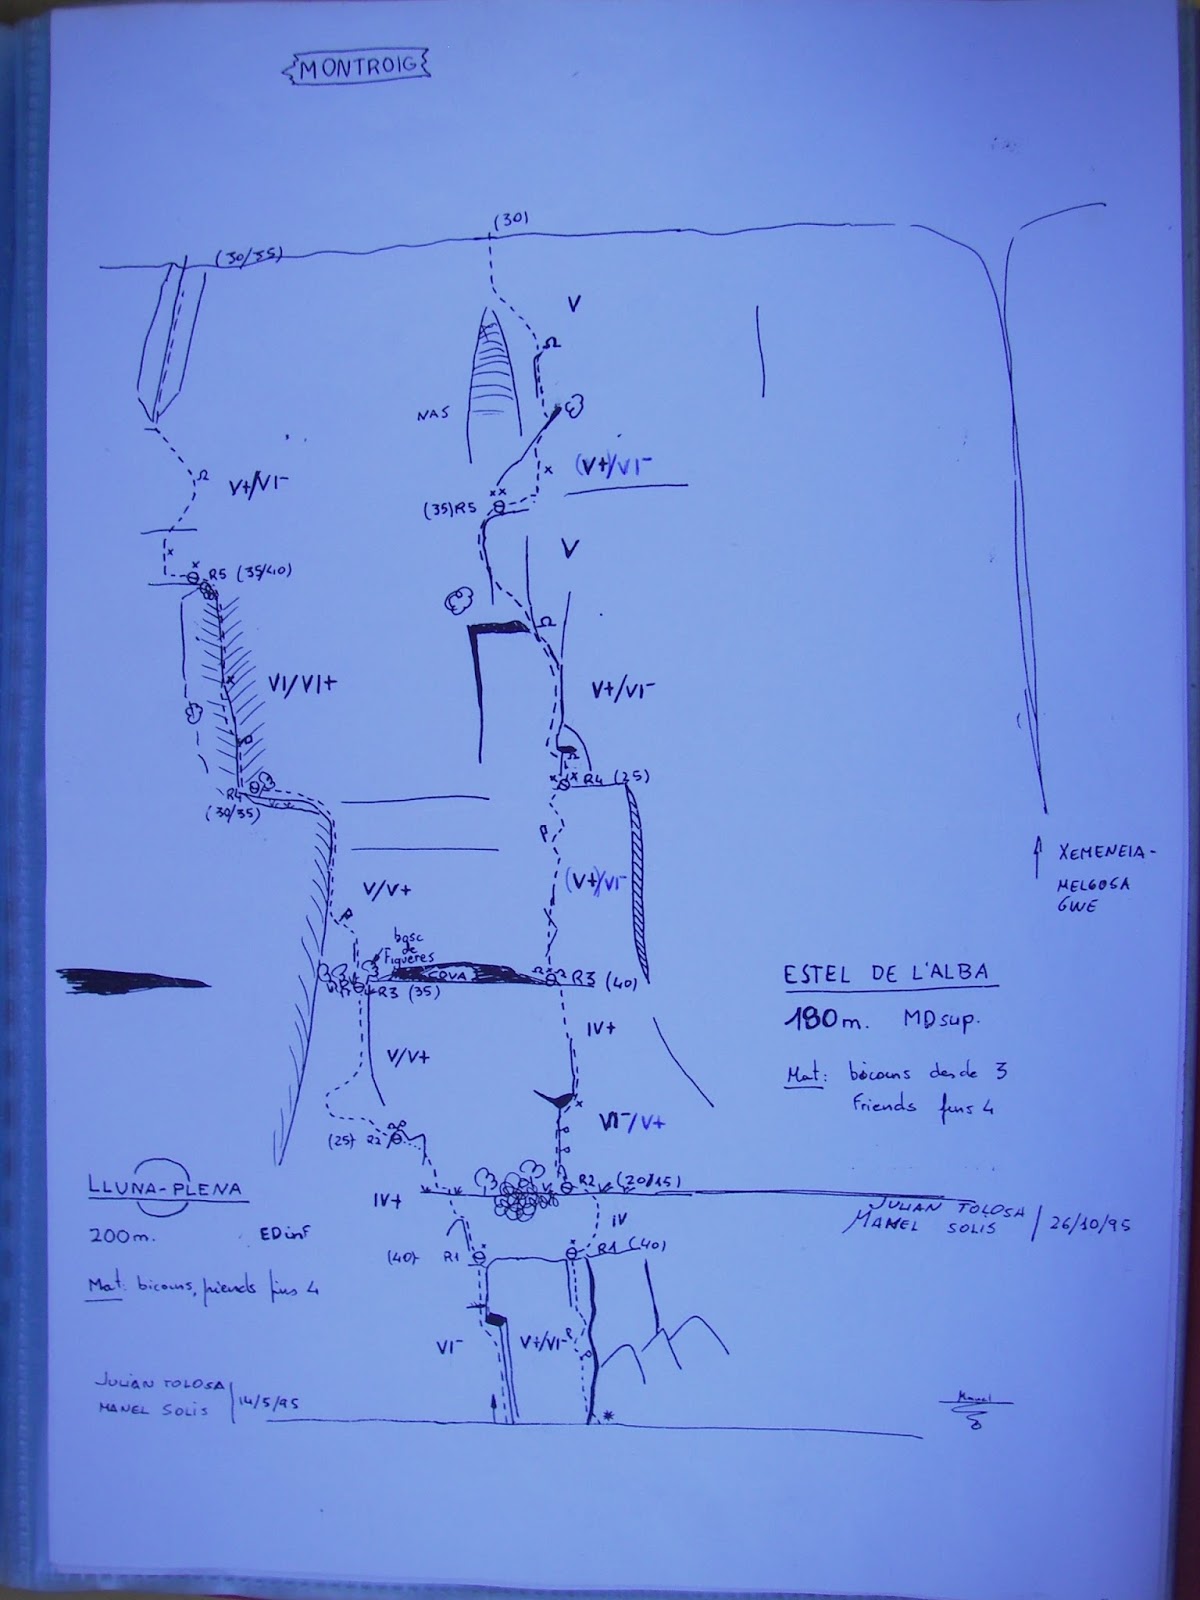 MONTROIG
(30)
(30/35)
V
NAS
V+/VI-
(V+)/VI-
(35) R5
V
R5 (35/40)
VI/VI+
V+/VI-
R4
(30/35)
R4 (25)
V/V+
(V+)/VI-
XEMENEIA-
MELGOSA
GWE
bosc
de
Figueres
COVA
R3 (35)
R3 (40)
ESTEL DE L'ALBA
180m. MDsup.
IV+
V/V+
Mat: bicoins desde 3
Friends fins 4
VI-/V+
(25) R2
R2 (20/15)
LLUNA-PLENA
200m. EDinf
Mat: bicoins, friends fins 4
IV+
IV
JULIAN TOLOSA
MANEL SOLIS / 26/10/95
(40) R1
R1 (40)
VI-
V+/VI-
JULIAN TOLOSA
MANEL SOLIS / 14/5/95
Manel